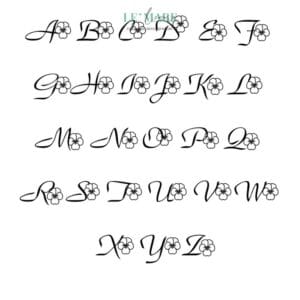 LE'MARK
A B C D E F
G H I J K L
M N O P Q
R S T U V W
X Y Z